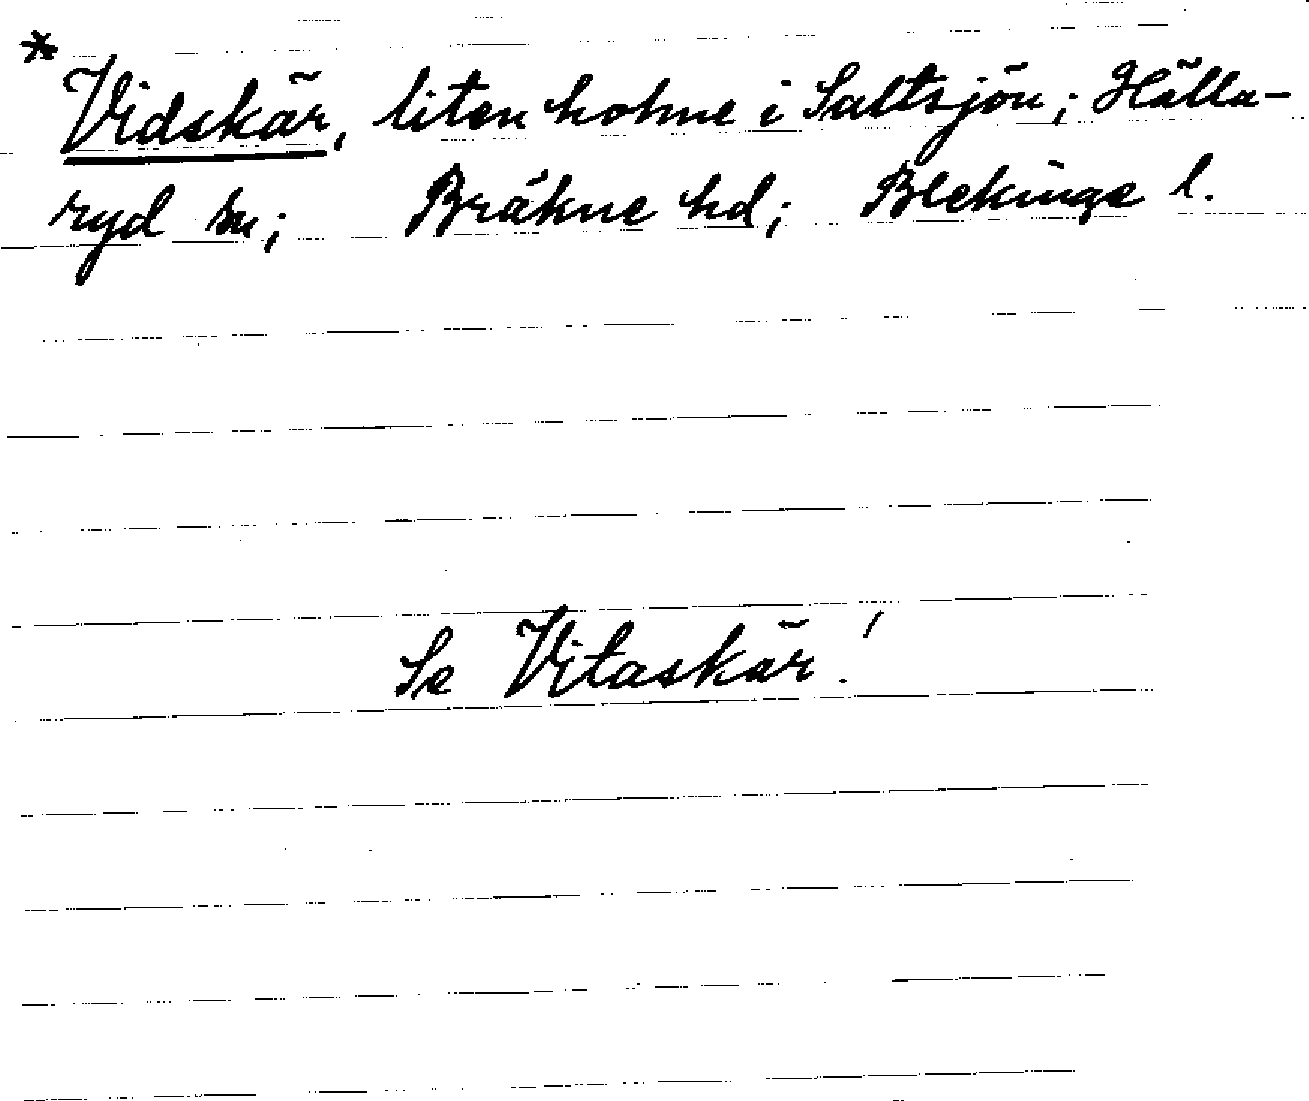 * Vidskär, liten holme i Saltsjön; Hälla-
ryd sn; Bräkne hd; Blekinge l.
Se Vitaskär!